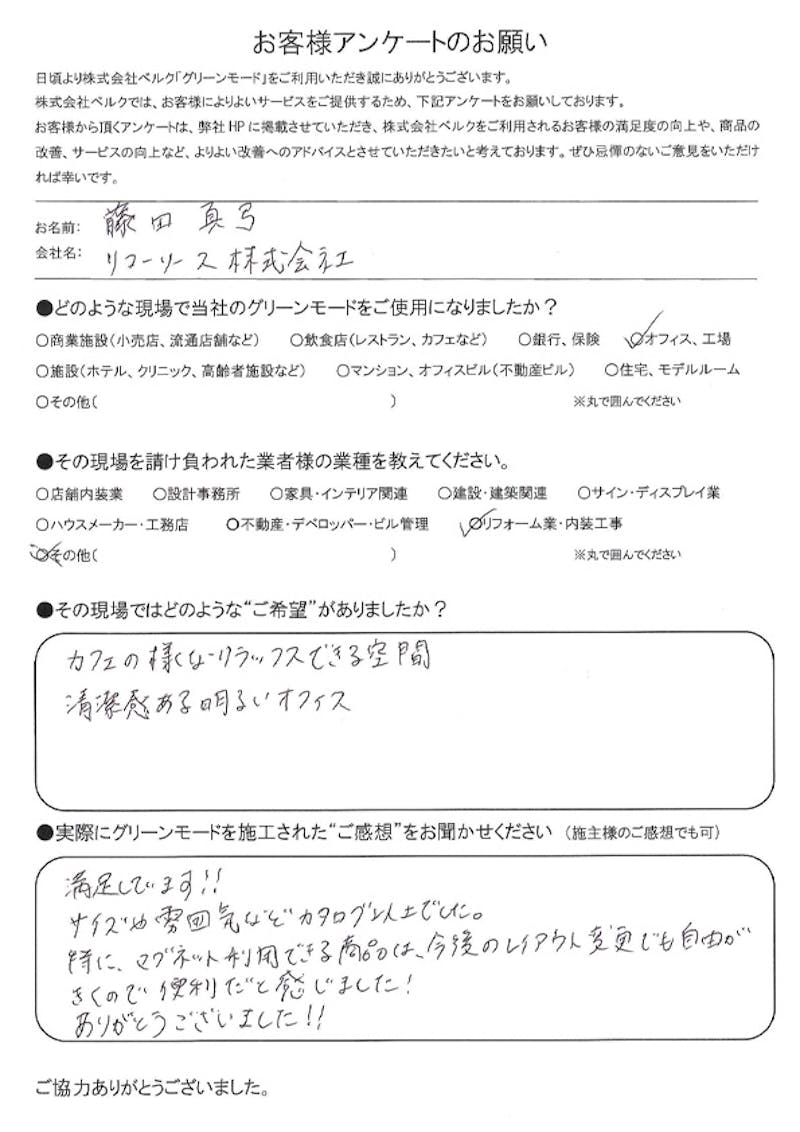 お客様アンケートのお願い
日頃より株式会社ベルク「グリーンモード」をご利用いただき誠にありがとうございます。
株式会社ベルクでは、お客様によりよいサービスをご提供するため、下記アンケートをお願いしております。
お客様から頂くアンケートは、弊社HPに掲載させていただき、株式会社ベルクをご利用されるお客様の満足度の向上や、商品の
改善、サービスの向上など、よりよい改善へのアドバイスとさせていただきたいと考えております。ぜひ忌憚のないご意見をいただけ
れば幸いです。
お名前: 藤田 真弓
会社名: リコーリース株式会社
●どのような現場で当社のグリーンモードをご使用になりましたか？
○商業施設(小売店、流通店舗など) ○飲食店(レストラン、カフェなど) ○銀行、保険 ○オフィス、工場
○施設(ホテル、クリニック、高齢者施設など) ○マンション、オフィスビル(不動産ビル) ○住宅、モデルルーム
○その他( ) ※丸で囲んでください
●その現場を請け負われた業者様の業種を教えてください。
○店舗内装業 ○設計事務所 ○家具・インテリア関連 ○建設・建築関連 ○サイン・ディスプレイ業
○ハウスメーカー・工務店 ○不動産・デベロッパー・ビル管理 ○リフォーム業・内装工事
○その他( ) ※丸で囲んでください
●その現場ではどのような“ご希望”がありましたか？
カフェの様なリラックスできる空間
清潔感ある明るいオフィス
●実際にグリーンモードを施工された“ご感想”をお聞かせください (施主様のご感想でも可)
満足しています!!
サイズや雰囲気などカタログ以上でした。
特に、マグネット利用できる商品は、今後のレイアウト変更でも自由が
きくので便利だと感じました!
ありがとうございました!!
ご協力ありがとうございました。